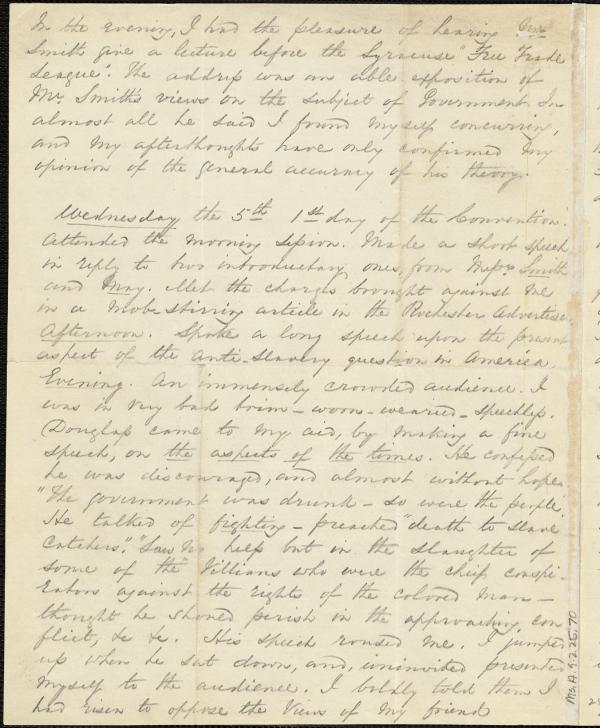 In the evening, I had the pleasure of hearing Mr
Smith give a lecture before the Syracuse "Free Trade
League". The address was an able exposition of
Mr. Smith's views on the subject of Government. In
almost all he said I found myself concurring,
and my afterthoughts have only confirmed my
opinion of the general accuracy of his theory.
Wednesday the 5th 1st day of the Convention.
Attended the morning session. Made a short speech
in reply to two introductory ones, from Messrs Smith
and May. Met the charges brought against me
in a mob-stirring article in the Rochester Advertiser.
Afternoon. Spoke a long speech upon the present
aspect of the anti-slavery question in America.
Evening. An immensely crowded audience. I
was in very bad trim - worn - wearied - speechless.
Douglass came to my aid, by making a fine
speech, on the aspects of the times. He confessed
he was discouraged, and almost without hope.
"The government was drunk - so were the people".
He talked of fighting - preached "death to slave
catchers". "Saw no help but in the slaughter of
some of the" Villians who were the chief conspi-
rators against the rights of the colored man -
thought he should perish in the approaching con
flict, &c &c. His speech roused me. I jumped
up when he sat down, and, uninvited presented
myself to the audience. I boldly told them I
had risen to oppose the views of my friend
Ms.A.9.2.25.70